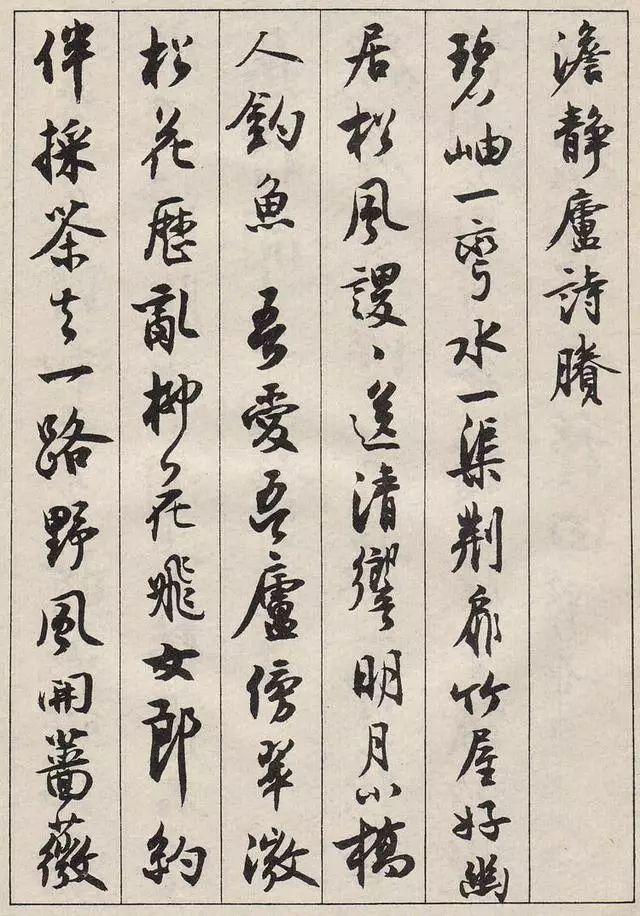 澹静廬詩賸
碧岫一彎水一渠荆扉竹屋好幽
居松風謖〻送清響明月小橋
人釣魚　吾愛吾廬傍翠微
松花歷亂柳〻花飛女郎約
伴採茶去一路野風開薔薇